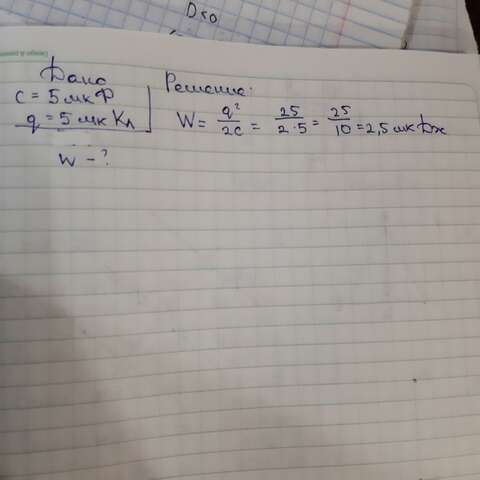 D<0
Дано
C = 5 мкФ
q = 5 мкКл
W - ?
Решение:
W = q²/2c = 25/2·5 = 25/10 = 2,5 мкДж